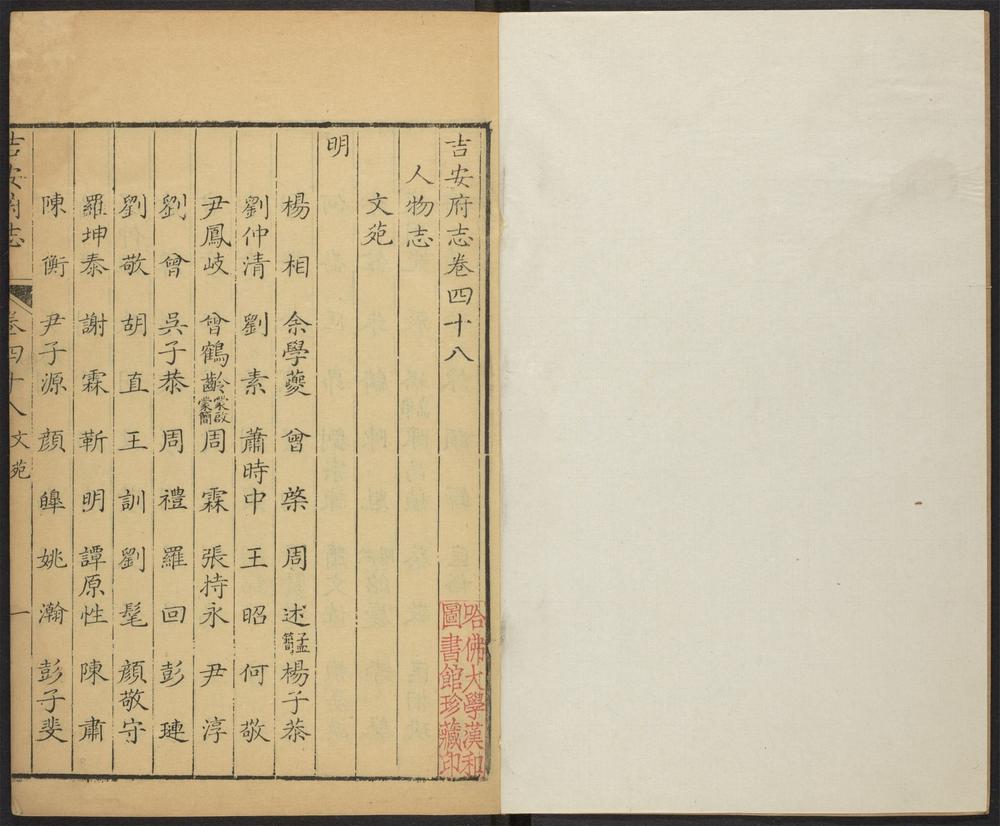 吉安府志卷四十八
人物志
文苑
明
楊相 余學夔 曾棨 周述 子孟簡 楊子恭
劉仲清 劉素 蕭時中 王昭 何敬
尹鳳岐 曾鶴齡 蒙啟 蒙簡 周霖 張持永 尹淳
劉曾 吳子恭 周禮 羅回 彭璉
劉敬 胡直 王訓 劉髦 顏敬守
羅坤泰 謝霖 靳明 譚原性 陳肅
陳衡 尹子源 顏皞 姚瀚 彭子斐
吉安府志 卷四十八 文苑 一
哈佛大學漢和
圖書館珍藏印